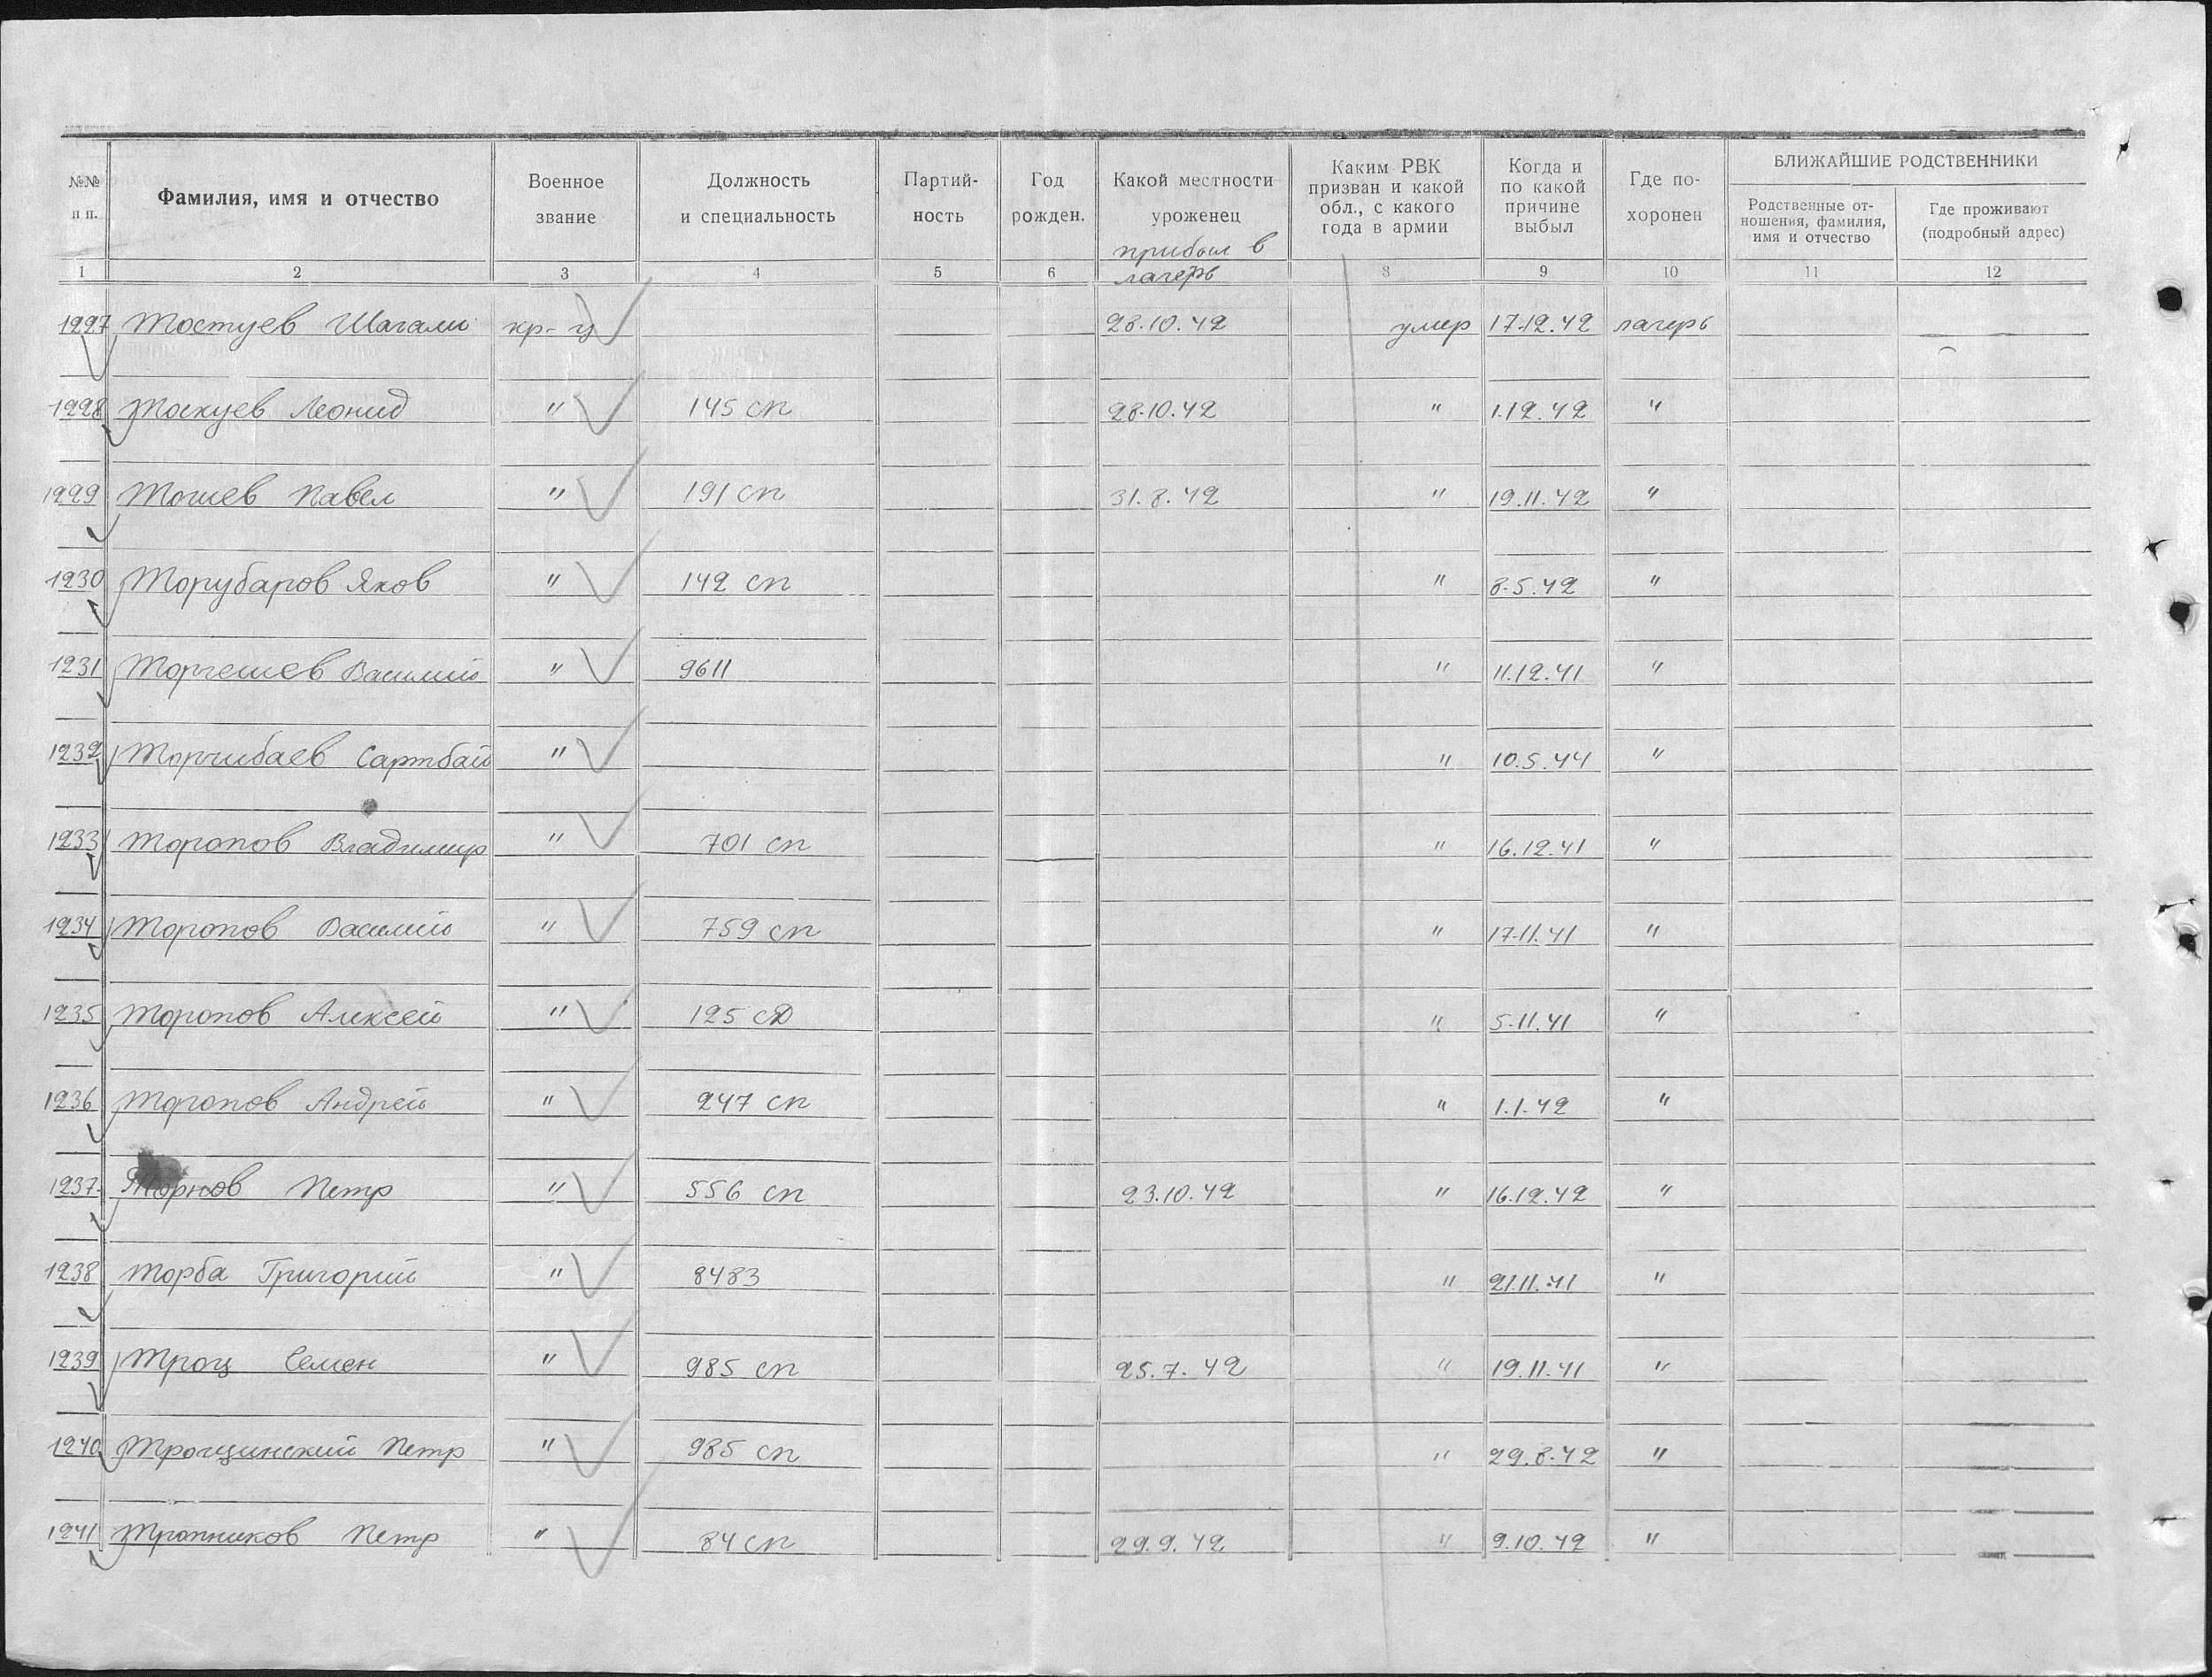 №№ п п. Фамилия, имя и отчество Военное звание Должность и специальность Партий-ность Год рожден. Какой местности уроженец Каким РВК призван и какой обл., с какого года в армии Когда и по какой причине выбыл Где по-хоронен БЛИЖАЙШИЕ РОДСТВЕННИКИ
Родственные от-ношения, фамилия, имя и отчество Где проживают (подробный адрес)
прибыл в лагерь
1 2 3 4 5 6 8 9 10 11 12
1227 Тостуев Шагали кр-ц 28.10.42 умер 17.12.42 лагерь
1228 Тоскуев Леонид " 145 сп 28.10.42 " 1.12.42 "
1229 Тошев Павел " 191 сп 31.8.42 " 19.11.42 "
1230 Торубаров Яков " 142 сп " 8.5.42 "
1231 Торгешев Василий " 9611 " 11.12.41 "
1232 Торчибаев Сартбай " " 10.5.44 "
1233 Торопов Владимир " 701 сп " 16.12.41 "
1234 Торопов Василий " 759 сп " 17.11.41 "
1235 Торопов Алексей " 125 сд " 5.11.41 "
1236 Торопов Андрей " 247 сп " 1.1.42 "
1237 Торнов Петр " 556 сп 23.10.42 " 16.12.42 "
1238 Торба Григорий " 8483 " 21.11.41 "
1239 Троц Семен " 985 сп 25.7.42 " 19.11.41 "
1240 Трощинский Петр " 985 сп " 29.8.42 "
1241 Тропников Петр " 84 сп 29.9.42 " 9.10.42 "